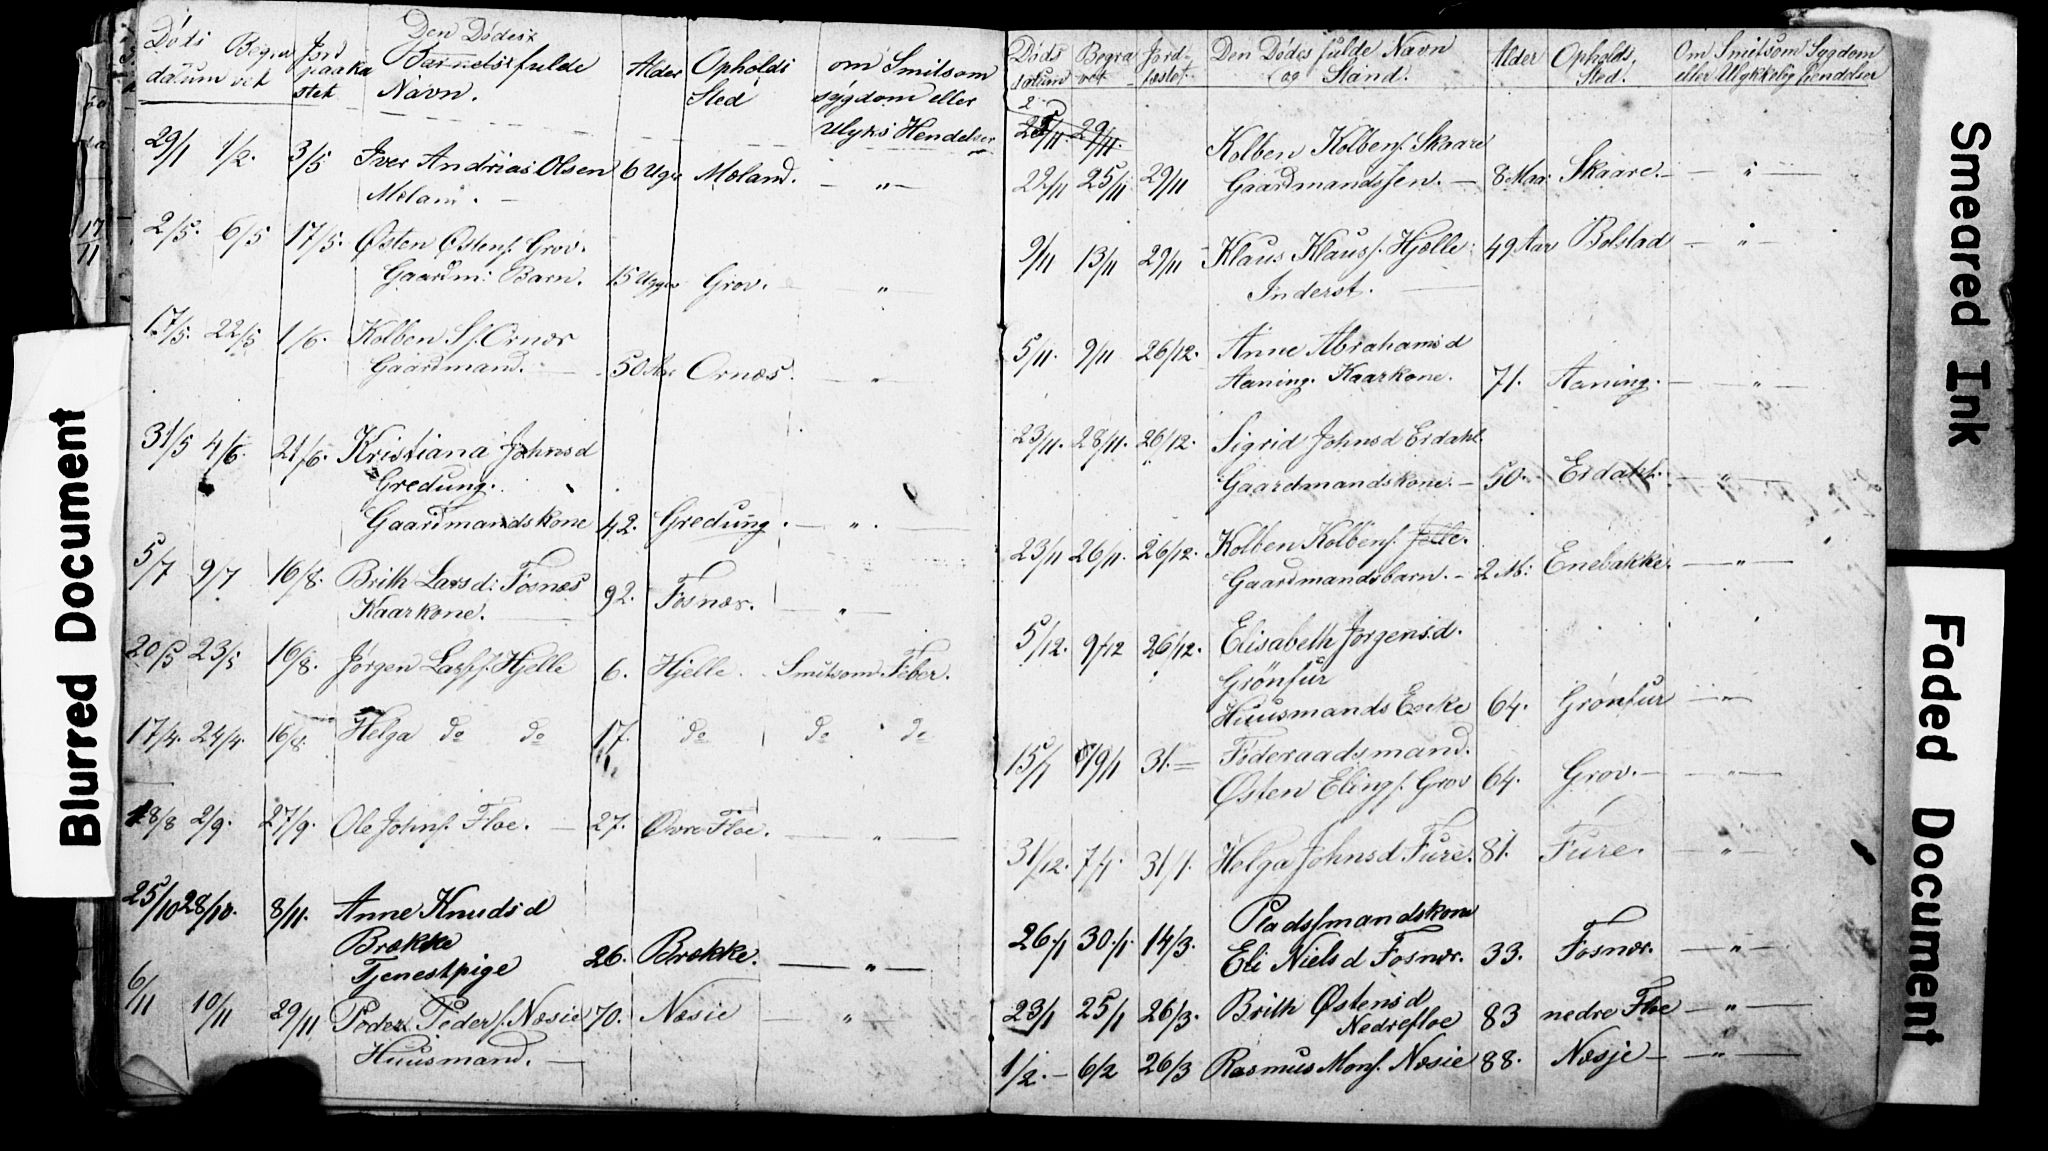 Blurred Document
Døds datum
Begravet
Jordpaakastet
Den Dødes
Barnets fulde Navn.
Alder
Opholds Sted
om Smitsom sygdom eller Ulyks Hendelser
29/1 1/2. 3/5 Iver Andrias Olsen 6 Uger Moland. — " —
2/5. 6/5 17/5. Østen Østens. Grov.
Gaardm: Barn. 15 Grov. — " —
17/5. 22/5 1/6. Kolben
Gaardmand. — 50 Aar Ornæs. — " —
31/5 4/6. 21/6. Kristiana Johnsd
Gredung.
Gaardmandskone 42. Gredung. — " —
5/7 9/7 16/8. Brith Larsd: Fosnæs 92. Fosnæs. — " —
Kaarkone.
20/5 23/5 16/8. Jørgen Hjelle 6. Hjelle. Smitsom Feber.
17/4. 24/4. 16/8. Helga do do 17. do do do
28/8 2/9. 27/9. Ole Johns. Floe. — 27. Øvre Floe. — " —
25/10 28/10. 8/11. Anne Knudsd
Brække
Tjenestpige 26. Brække. — " —
6/11 10/11 29/11 Peder s. Næsie 70. Næsie — " —
Huusmand. —
Døds datum
Begravet
Jordfæstet
Den Dødes fulde Navn og Stand.
Alder
Opholds Sted.
Om Smitsom Sygdom eller Ulykkelig hendelser
29/11.
Kolben Kolbens. Skaare
22/11 25/11 29/11 Gaardmandssøn. — 8 Skaare. — " —
9/11 13/11 29/11 Klaus Klauss. Hjelle. 49 Aar Bolstad — " —
Inderst.
5/11. 9/11 26/12. Anne Abrahamsd
Aaning. Kaarkone. 71. Aaning. — " —
23/11. 28/11. 26/12. Sigrid Johnsd Erdahl.
Gaardmandskone. — 50. Erdahl. — " —
23/11 26/11. 26/12. Kolben Kolbens.
Gaardmandsbarn. — 2 M: Enebakke. — " —
5/12. 9/12 26/12. Elisabeth Jørgensd.
Grönfur
Huusmands Enke 64. Grönfur — " —
15/1 19/1 31. = Føderaadsmand.
Østen Elings. Grov 64. Grov. — " —
31/12. 7/1. 31/1. Helga Johnsd Fure. 81. Fure. — " —
Pladsmandskone
26./1 30./1. 14/3. Eli Nielsd Fosnæs. 33. Fosnæs. — " —
23/1 25/1 26/3. Brith Østensd
Nedrefloe 83 nedre Floe — " —
1/2. — 6/2 26/3 Rasmus Mons. Næsie 88. Næsje — " —
Smeared Ink
Faded Document